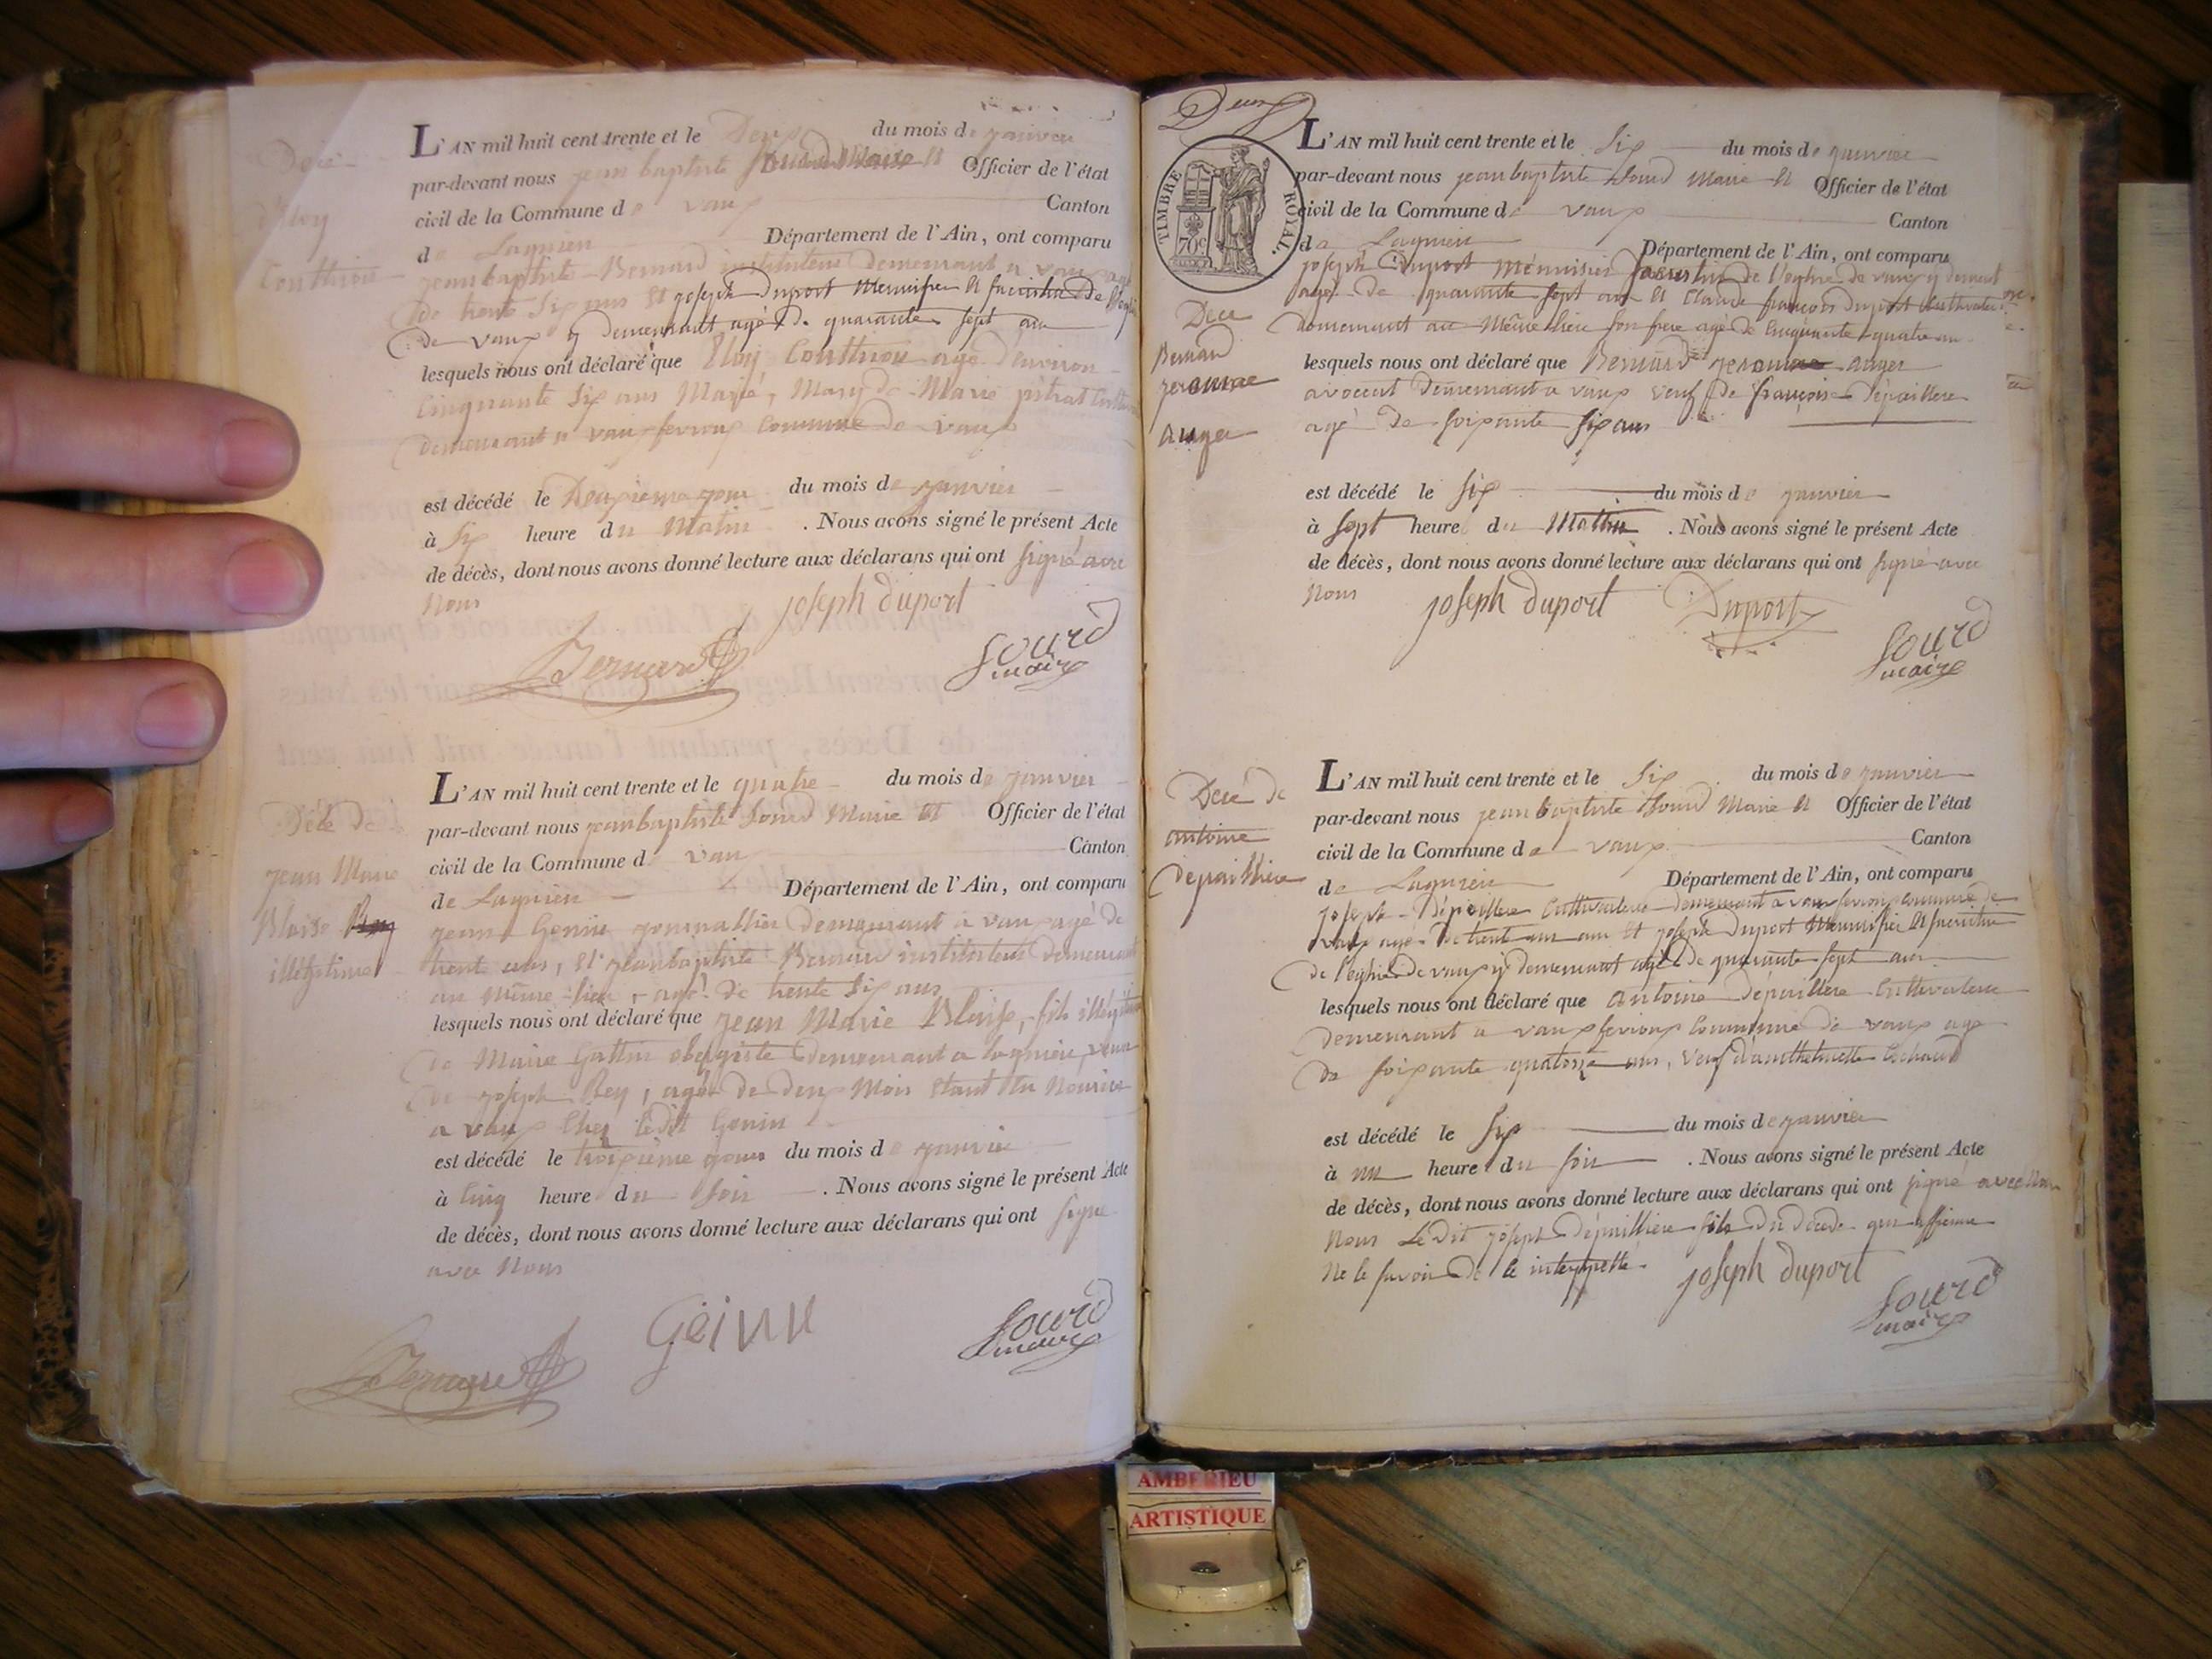 Décé
d'Eloy
Conttriou
L'AN mil huit cent trente et le Deux du mois de janvier
par-devant nous jean baptiste Sourd Maire et Officier de l'état
civil de la Commune de vaux Canton
de Lagnieu Département de l'Ain, ont comparu
jeanbaptiste Bernard instituteur demeurant a vaux agé
de trente six ans et joseph Duport Menuisier et sacristin de l'eglise
de vaux y demeurant agé de quarante sept ans
lesquels nous ont déclaré que Eloy agé d'environ
cinquante six ans Marié, Mary de Marie
demeurant a vaux fevroux commune de vaux
est décédé le Deuxieme jour du mois de janvier
à six heure du Matin . Nous avons signé le présent Acte
de décès, dont nous avons donné lecture aux déclarans qui ont signé avec
Nous
joseph duport
Bernard
Sourd
maire
Décé de
jean Marie
Blaise Rey
illégitime
L'AN mil huit cent trente et le quatre du mois de janvier
par-devant nous jeanbaptiste Sourd Maire et Officier de l'état
civil de la Commune de vaux Canton
de Lagnieu Département de l'Ain, ont comparu
jean Genin journallier demeurant a vaux agé de
trent ans, et jeanbaptiste Bernard instituteur demeurant
au même lieu, agé de trente six ans
lesquels nous ont déclaré que jean Marie Blaise, fils illégitime
de Marie demeurant a lagnieu, veuve
de joseph Rey, agé de deux Mois etant en Nourice
a vaux chez ledit Genin
est décédé le troisième jour du mois de janvier
à cinq heure du soir . Nous avons signé le présent Acte
de décès, dont nous avons donné lecture aux déclarans qui ont signé
avec Nous
Bernard
Geinn
Sourd
maire
Deux
TIMBRE ROYAL.
70c
Décé
Bernard
jeromme
auger
L'AN mil huit cent trente et le Six du mois de janvier
par-devant nous jeanbaptiste Sourd Maire et Officier de l'état
civil de la Commune de vaux Canton
de Lagnieu Département de l'Ain, ont comparu
joseph Duport Menuisier sacristin de l'eglise de vaux y demeurant
agé de quarante sept ans et Claude françois Duport cultivateur
demeurant au Même lieu son frere agé de cinquante quatre ans
lesquels nous ont déclaré que Bernard jeromme auger
avocat demeurant a vaux veuf de françoise Dépaillere
agé de soixante six ans
est décédé le six du mois de janvier
à sept heure du Mattin . Nous avons signé le présent Acte
de décès, dont nous avons donné lecture aux déclarans qui ont signé avec
Nous
joseph duport
Duport
Sourd
maire
Décé de
antoine
dépaillière
L'AN mil huit cent trente et le Six du mois de janvier
par-devant nous jean baptiste Sourd Maire et Officier de l'état
civil de la Commune de vaux Canton
de Lagnieu Département de l'Ain, ont comparu
joseph Dépaillere cultivateur demeurant a vaux fevroux commune de
vaux agé de trent un ans et joseph Duport Menuisier et sacristin
de l'eglise de vaux y demeurant agé de quarante sept ans
lesquels nous ont déclaré que antoine Dépaillere cultivateur
demeurant a vaux fevroux commune de vaux agé
de soixante quatorze ans, veuf
est décédé le six du mois de janvier
à un heure du soir . Nous avons signé le présent Acte
de décès, dont nous avons donné lecture aux déclarans qui ont signé avec Nous
Nous Ledit joseph Dépaillière fils du décédé qui affirme
Ne le savoir de ce interppellé
joseph duport
Sourd
maire
AMBERIEU
ARTISTIQUE